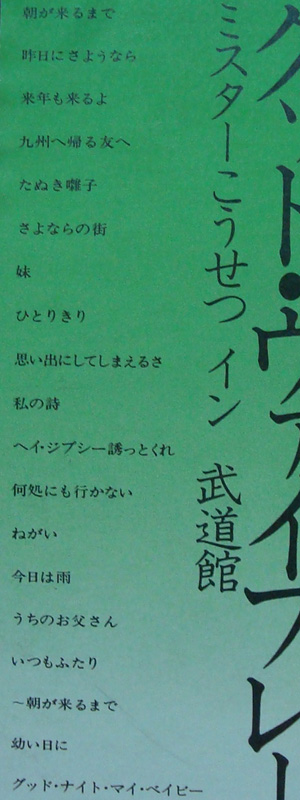 グッド・ヴァイブレー
ミスターこうせつ イン 武道館
朝が来るまで
昨日にさようなら
来年も来るよ
九州へ帰る友へ
たぬき囃子
さよならの街
妹
ひとりきり
思い出にしてしまえるさ
私の詩
ヘイ・ジプシー誘っとくれ
何処にも行かない
ねがい
今日は雨
うちのお父さん
いつもふたり
〜朝が来るまで
幼い日に
グッド・ナイト・マイ・ベイビー